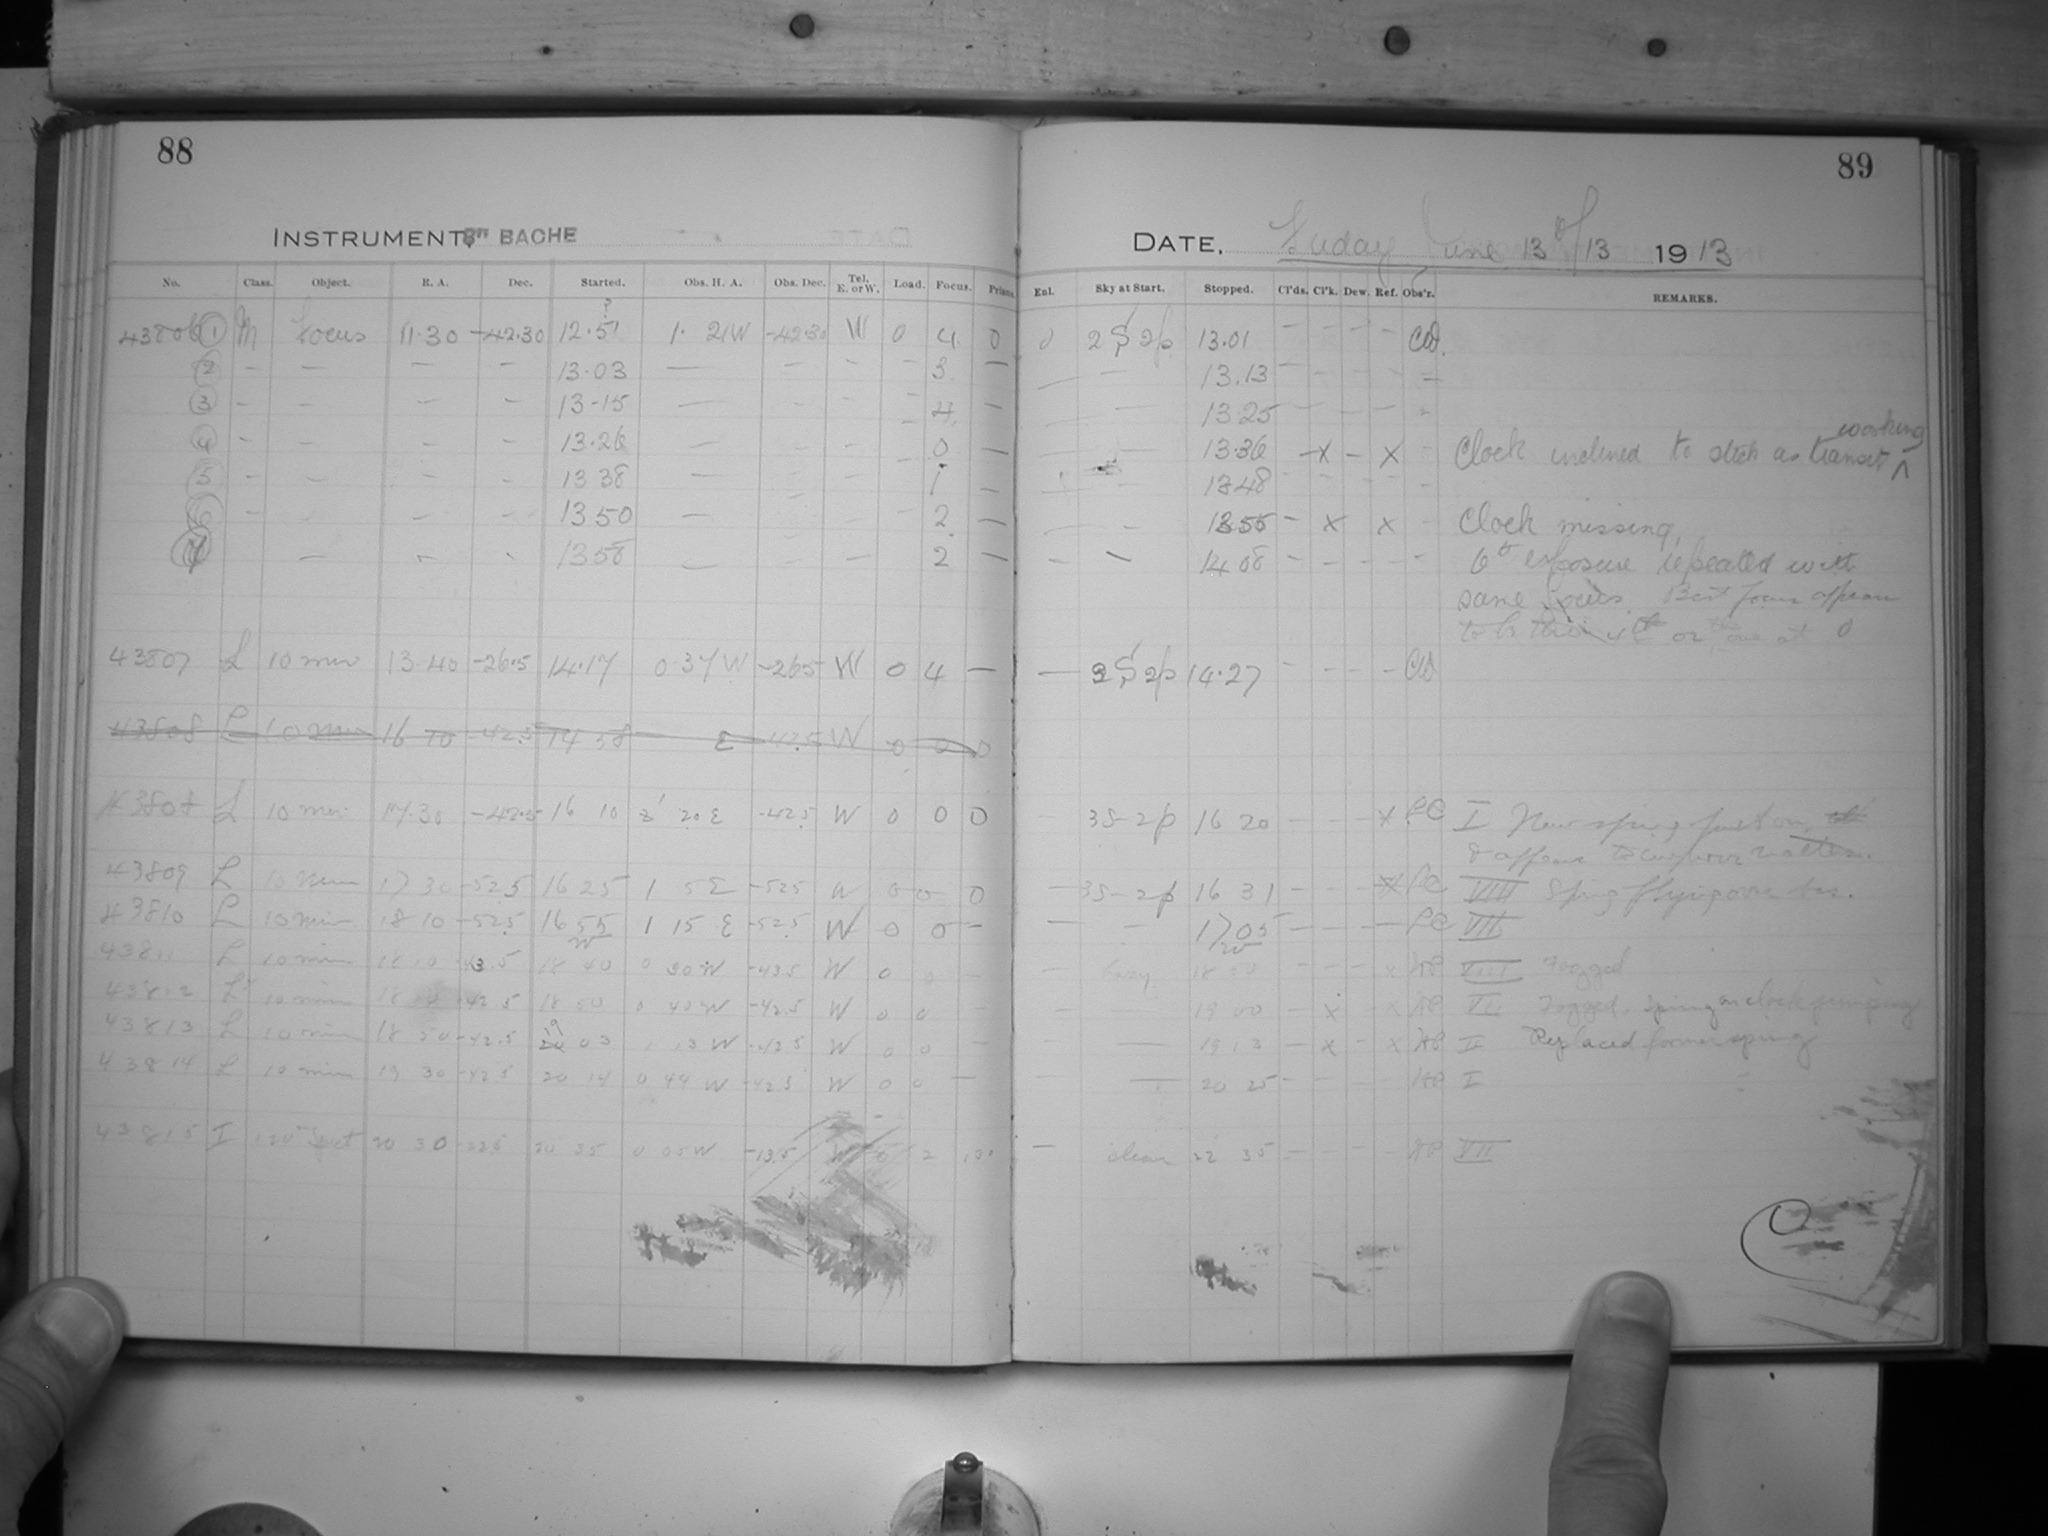 88
89
INSTRUMENT, 8" BACHE
DATE, Friday June 13 of 13 1913
No. Class. Object. R. A. Dec. Started. Obs. H. A. Obs. Dec. Tel. E. or W. Load. Focus. Prism. Enl. Sky at Start. Stopped. Cl'ds. Cl'k. Dew. Ref. Obs'r. REMARKS.
?
43806 1 M Focus 11.30 -42.30 12.51 1. 21W -42.30 W 0 4 0 0 2 S 2p 13.01 - - - -
2 - - - - 13.03 - - - - 3 - - - 13.13 - - - - -
3 - - - - 13-15 - - - - 4 - - - 13.25 - - - - -
4 - - - - 13.26 - - - - 0 - - - 13.36 - x - x - Clock inclined to stick as transit working
5 - - - - 13 38 - - - - 1 - - - 13 48 - - - - -
6 - - - - 13 50 - - - - 2 - - - 13 55 - x x - Clock missing,
7 - - - 13 58 - - - 2 - - - 14 08 - - - - - 6th exposure repeated with
same focus. Best focus appears
to be 4th or one at 0
43807 L 10 min 13.40 -26.5 14.17 0 37 W -26.5 W 0 4 - - 2 S 2p 14.27 - - - -
43808 L 10 min 16 10 -42.5 14 38 E -42.5 W 0 0 0
43808 L 10 min 17.30 -42.5 16 10 20 E -42.5 W 0 0 0 - 3S-2p 16 20 - - - x I New spring put on,
& appears to
43809 L 10 min 17 30 -52.5 16 25 1 5 E -52.5 W 0 0 0 - 3S-2p 16 31 - - - x VIII Spring flying over
43810 L 10 min 18 10 -52.5 16 55 1 15 E -52.5 W 0 0 - - - 17 05 - - - - VII
43811 L 10 min 18 10 -43.5 18 40 0 30 W -43.5 W 0 0 - - hazy 18 50 - - - x VIII Fogged
43812 L 10 min 18 -42.5 18 50 0 40 W -42.5 W 0 0 - - - 19 00 - x - x VII Fogged. Spring on clock jumping
43813 L 10 min 18 50 -42.5 19 03 13 W -42.5 W 0 0 - - - 19 13 - x - x II Replaced former spring
43814 L 10 min 19 30 -42.5 20 14 0 44 W -42.5 W 0 0 - - - 20 25 - - - - I
43815 I 20 30 20 35 0 05 W -13.5 W 0 2 - clear 22 35 - - - - VII